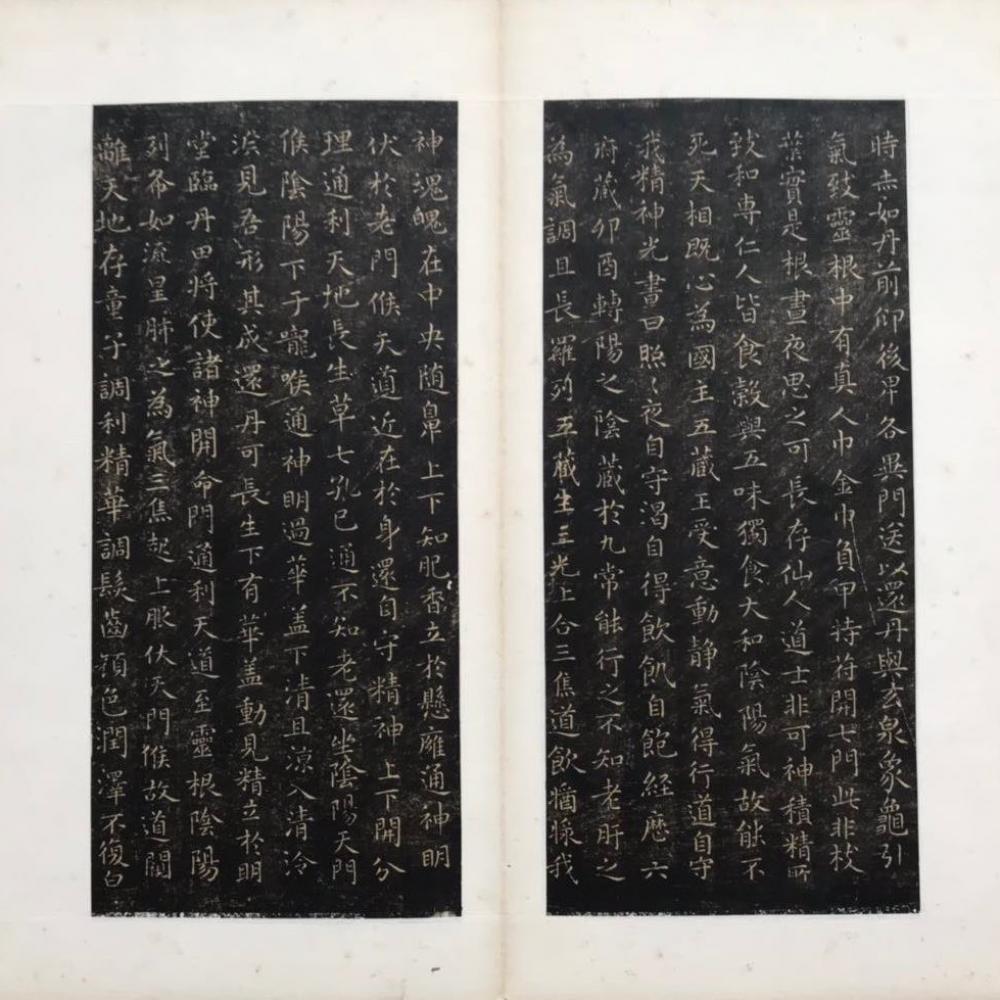 時赤如丹前仰後卑各異門送以還丹與玄泉象龜引
氣致靈根中有真人巾金巾負甲持符開七門此非枝
葉實是根晝夜思之可長存仙人道士非可神積精所
致和専仁人皆食穀與五味獨食大和陰陽氣故能不
死天相既心為國主五藏王受意動静氣得行道自守
我精神光晝日照〻夜自守渴自得飲飢自飽経歷六
府藏卯酉轉陽之陰藏於九常能行之不知老肝之
為氣調且長羅列五藏生三光上合三焦道飲醬漿我
神魂魄在中央随鼻上下知肥香立於懸廱通神明
伏於老門候天道近在於身還自守精神上下開分
理通利天地長生草七孔已通不知老還坐陰陽天門
候陰陽下于嚨喉通神明過華盖下清且涼入清泠
淵見吾形其成還丹可長生下有華盖動見精立於明
堂臨丹田将使諸神開命門通利天道至靈根陰陽
列布如流星肺之為氣三焦起上服伏天門候故道闚
離天地存童子調利精華調髮齒顔色潤澤不復白